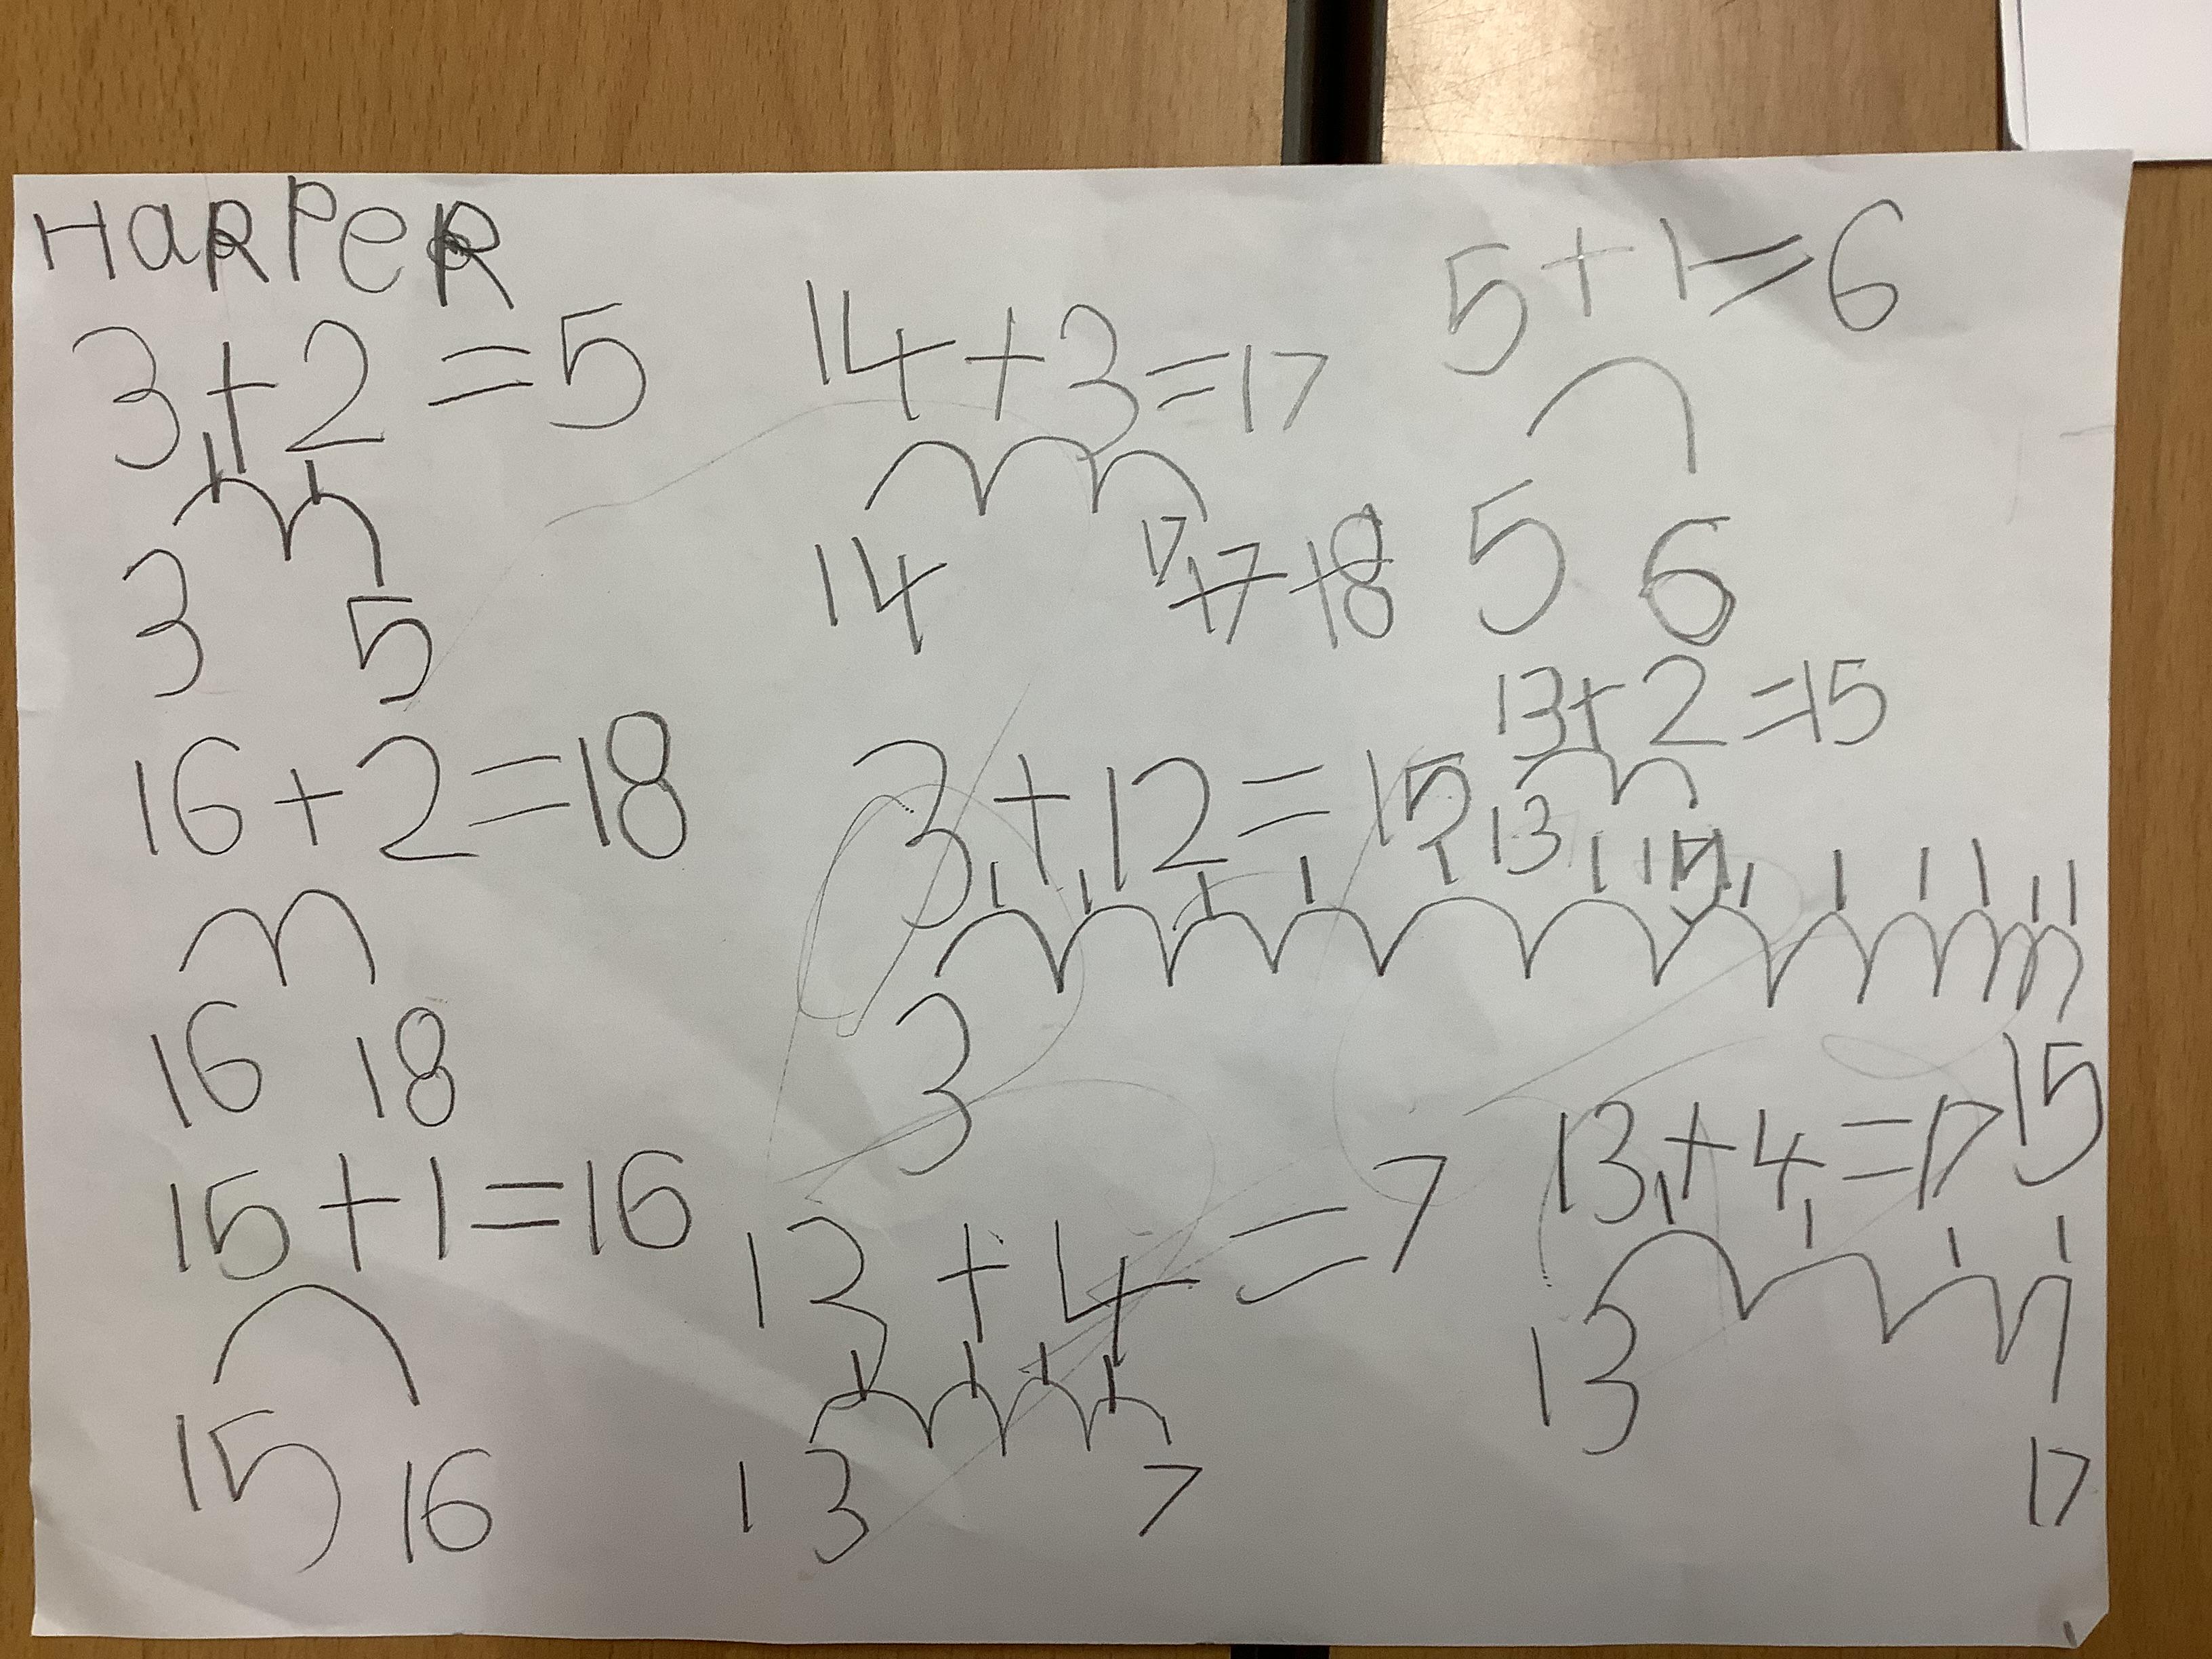 HaRPeR
3+2=5
3 5
16+2=18
16 18
15+1=16
15 16
14+3=17
14 17 17 18
3+12=15
3 15
13+4=7
13 7
5+1=6
5 6
13+2=15
13 15
13+4=17
13 17